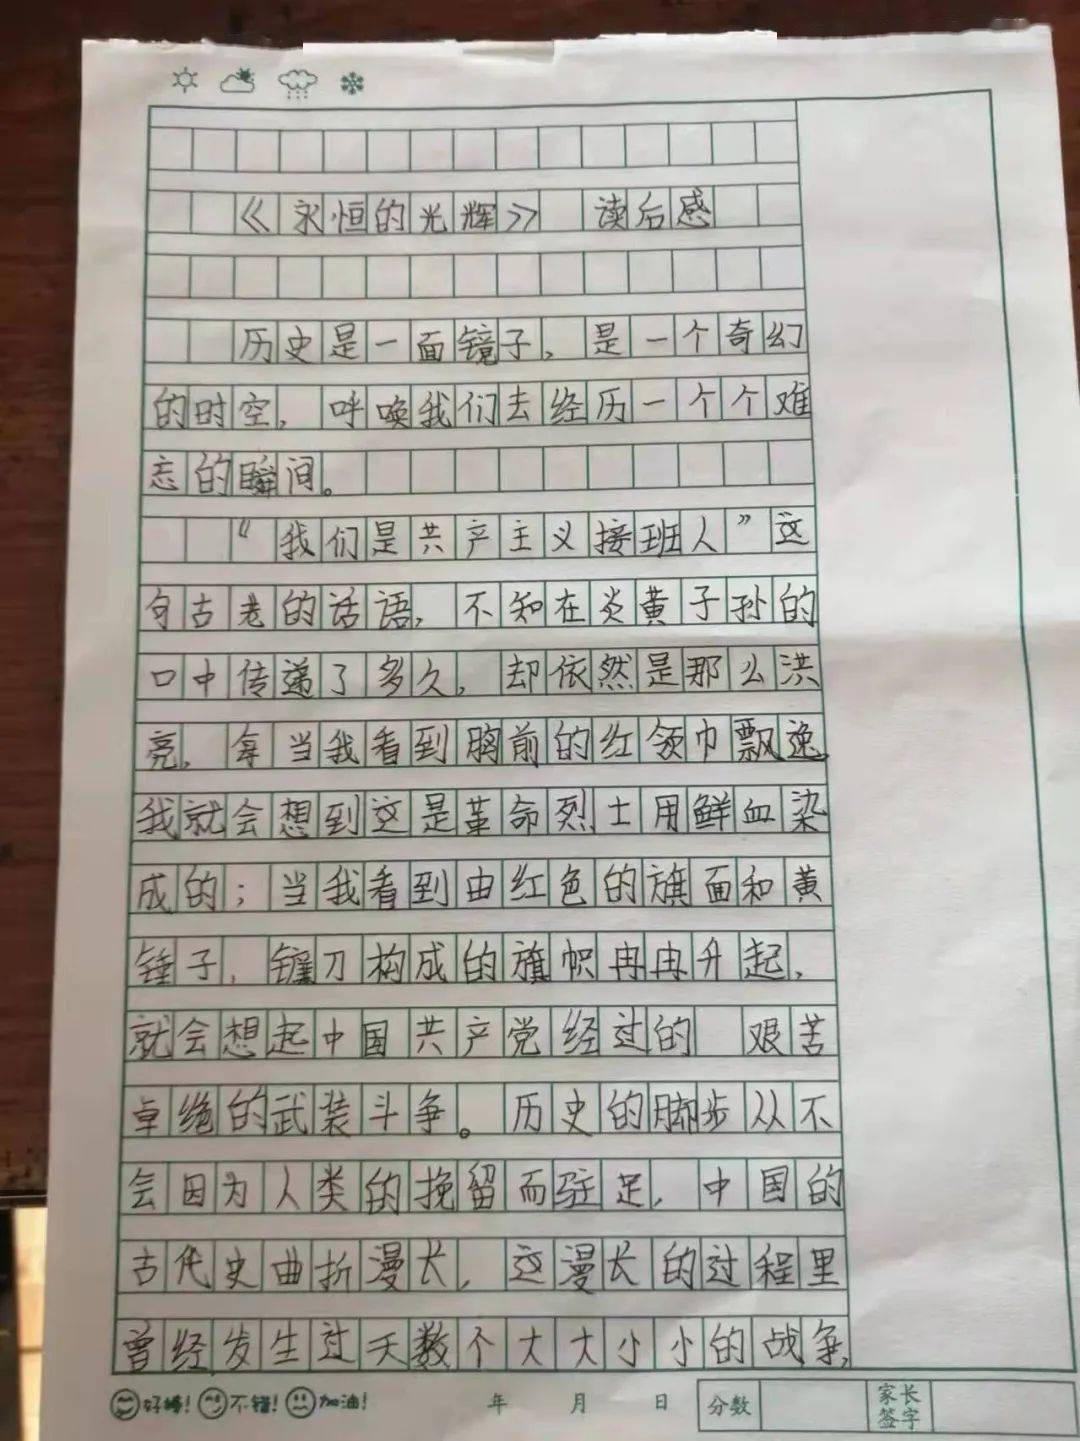 《永恒的光辉》 读后感
历史是一面镜子，是一个奇幻
的时空，呼唤我们去经历一个个难
忘的瞬间。
“我们是共产主义接班人”这
句古老的话语，不知在炎黄子孙的
口中传递了多久，却依然是那么洪
亮，每当我看到胸前的红领巾飘逸，
我就会想到这是革命烈士用鲜血染
成的；当我看到由红色的旗面和黄
锤子，镰刀构成的旗帜冉冉升起，
就会想起中国共产党经过的 艰苦
卓绝的武装斗争。历史的脚步从不
会因为人类的挽留而驻足，中国的
古代史曲折漫长，这漫长的过程里
曾经发生过无数个大大小小的战争，
好棒！ 不错！ 加油！ 年 月 日 分数 家长签字